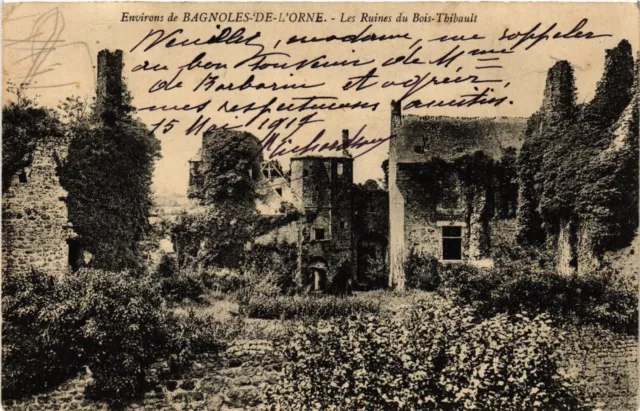 Environs de BAGNOLES-DE-L'ORNE. - Les Ruines du Bois-Thibault
Veuillez, madame, me rappeler
au bon souvenir de M. et Mme
de Barbarin et agréer,
mes respectueuses amitiés.
15 Mai 1919